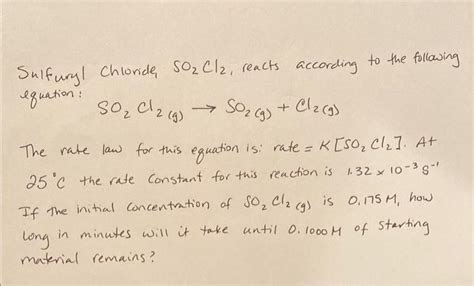 Sulfuryl Chloride, SO2Cl2, reacts according to the following
equation:
SO2Cl2(g) → SO2(g) + Cl2(g)
The rate law for this equation is: rate = K[SO2Cl2]. At
25°C the rate constant for this reaction is 1.32 x 10⁻³ s⁻¹
If the initial concentration of SO2Cl2(g) is 0.175M, how
long in minutes will it take until 0.1000M of starting
material remains?